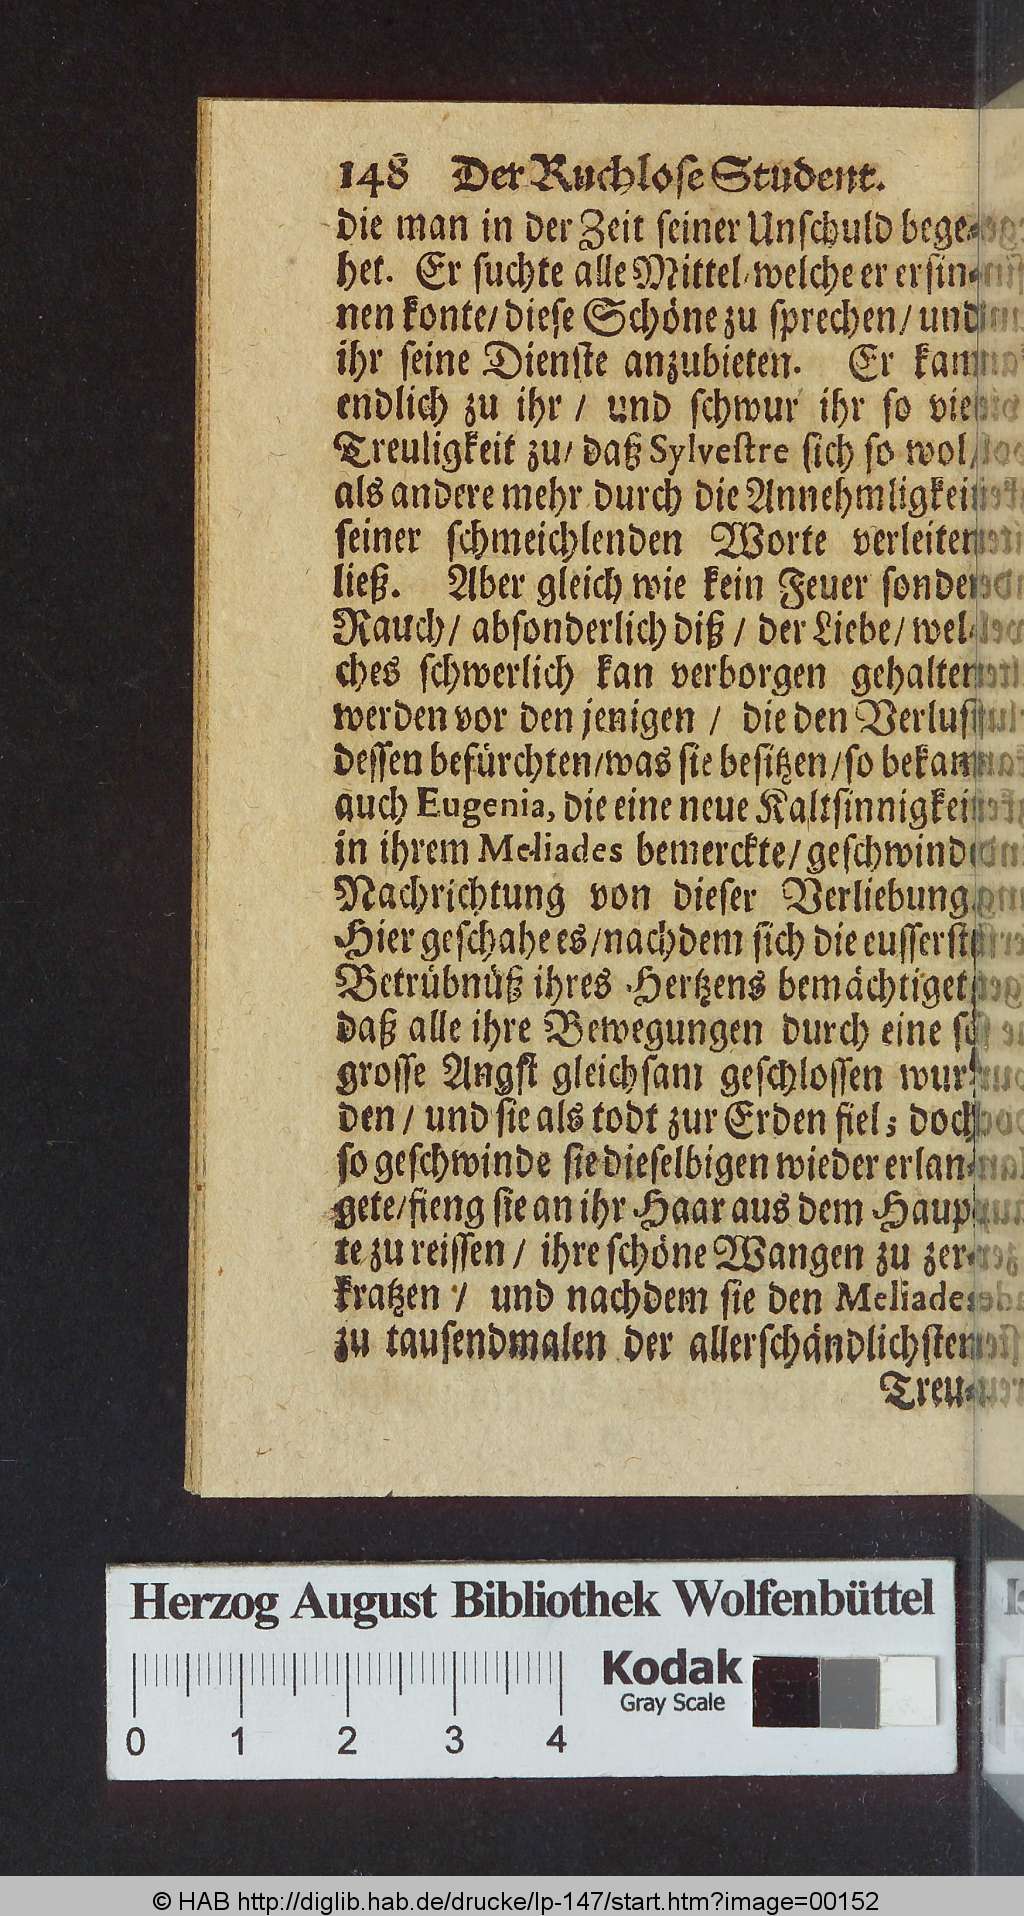 148 Der Ruchlose Student.
die man in der Zeit seiner Unschuld bege-
het. Er suchte alle Mittel/ welche er ersin-
nen konte/ diese Schöne zu sprechen/ und
ihr seine Dienste anzubieten. Er kam
endlich zu ihr / und schwur ihr so viel
Treuligkeit zu/ daß Sylvestre sich so wol/
als andere mehr durch die Annehmligkeit
seiner schmeichlenden Worte verleiten
ließ. Aber gleich wie kein Feuer sonder
Rauch/ absonderlich diß / der Liebe/ wel-
ches schwerlich kan verborgen gehalten
werden vor den jenigen / die den Verlust
dessen befürchten/was sie besitzen/so bekam
auch Eugenia, die eine neue Kaltsinnigkeit
in ihrem Meliades bemerckte/ geschwind
Nachrichtung von dieser Verliebung.
Hier geschahe es/nachdem sich die eusserste
Betrübnüß ihres Hertzens bemächtiget/
daß alle ihre Bewegungen durch eine so
grosse Angst gleichsam geschlossen wur-
den / und sie als todt zur Erden fiel; doch
so geschwinde sie dieselbigen wieder erlan-
gete/fieng sie an ihr Haar aus dem Haup-
te zu reissen / ihre schöne Wangen zu zer-
kratzen / und nachdem sie den Meliades
zu tausendmalen der allerschändlichsten
Treu-
Herzog August Bibliothek Wolfenbüttel
Kodak
Gray Scale
0 1 2 3 4
© HAB http://diglib.hab.de/drucke/lp-147/start.htm?image=00152